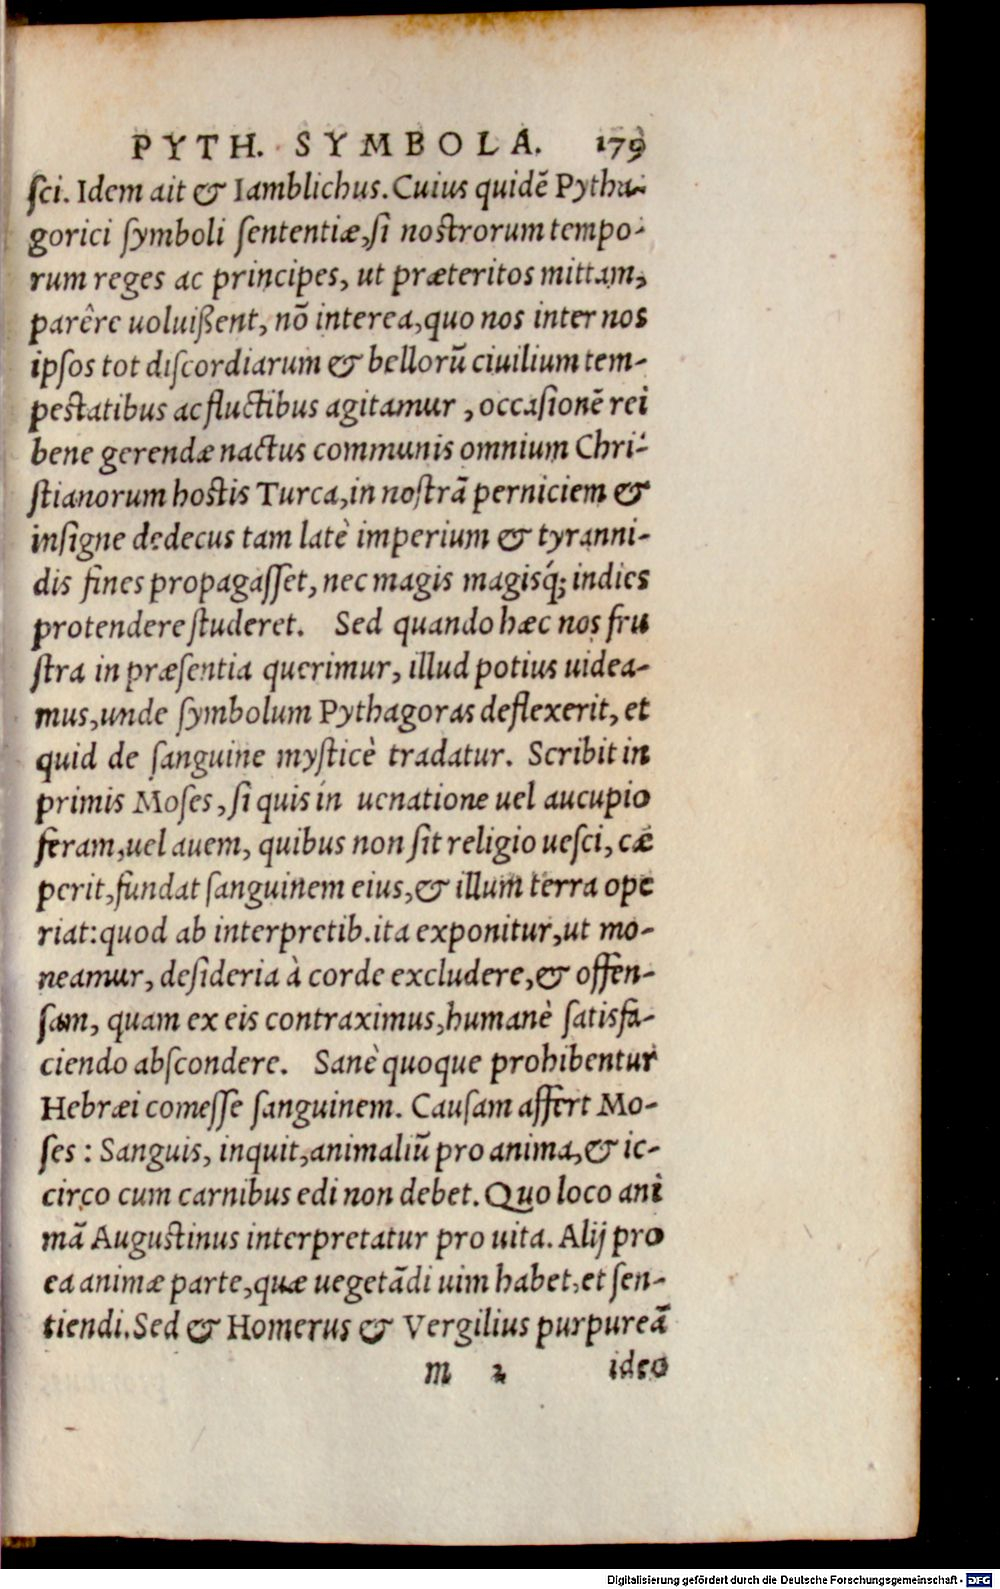 PYTH. SYMBOLA. 179
ſci. Idem ait & Iamblichus. Cuius quidē Pytha-
gorici ſymboli ſententiæ, ſi noſtrorum tempo-
rum reges ac principes, ut præteritos mittam,
parêre uoluißent, nō interea, quo nos inter nos
ipſos tot diſcordiarum & bellorū ciuilium tem-
peſtatibus ac fluctibus agitamur, occaſionē rei
bene gerendæ nactus communis omnium Chri-
ſtianorum hoſtis Turca, in noſtrā perniciem &
inſigne dedecus tam latè imperium & tyranni-
dis fines propagaſſet, nec magis magisq́; indies
protendere ſtuderet. Sed quando hæc nos fru
ſtra in præſentia querimur, illud potius uidea-
mus, unde ſymbolum Pythagoras deflexerit, et
quid de ſanguine myſticè tradatur. Scribit in
primis Moſes, ſi quis in uenatione uel aucupio
feram, uel auem, quibus non ſit religio ueſci, cæ
perit, fundat ſanguinem eius, & illum terra ope
riat: quod ab interpretib. ita exponitur, ut mo-
neamur, deſideria à corde excludere, & offen-
ſam, quam ex eis contraximus, humanè ſatisfa-
ciendo abſcondere. Sanè quoque prohibentur
Hebræi comeſſe ſanguinem. Cauſam affert Mo-
ſes: Sanguis, inquit, animaliū pro anima, & ic-
circo cum carnibus edi non debet. Quo loco ani
mā Auguſtinus interpretatur pro uita. Alij pro
ea animæ parte, quæ uegetādi uim habet, et ſen-
tiendi. Sed & Homerus & Vergilius purpureā
m 2 ideo
Digitalisierung gefördert durch die Deutsche Forschungsgemeinschaft - DFG